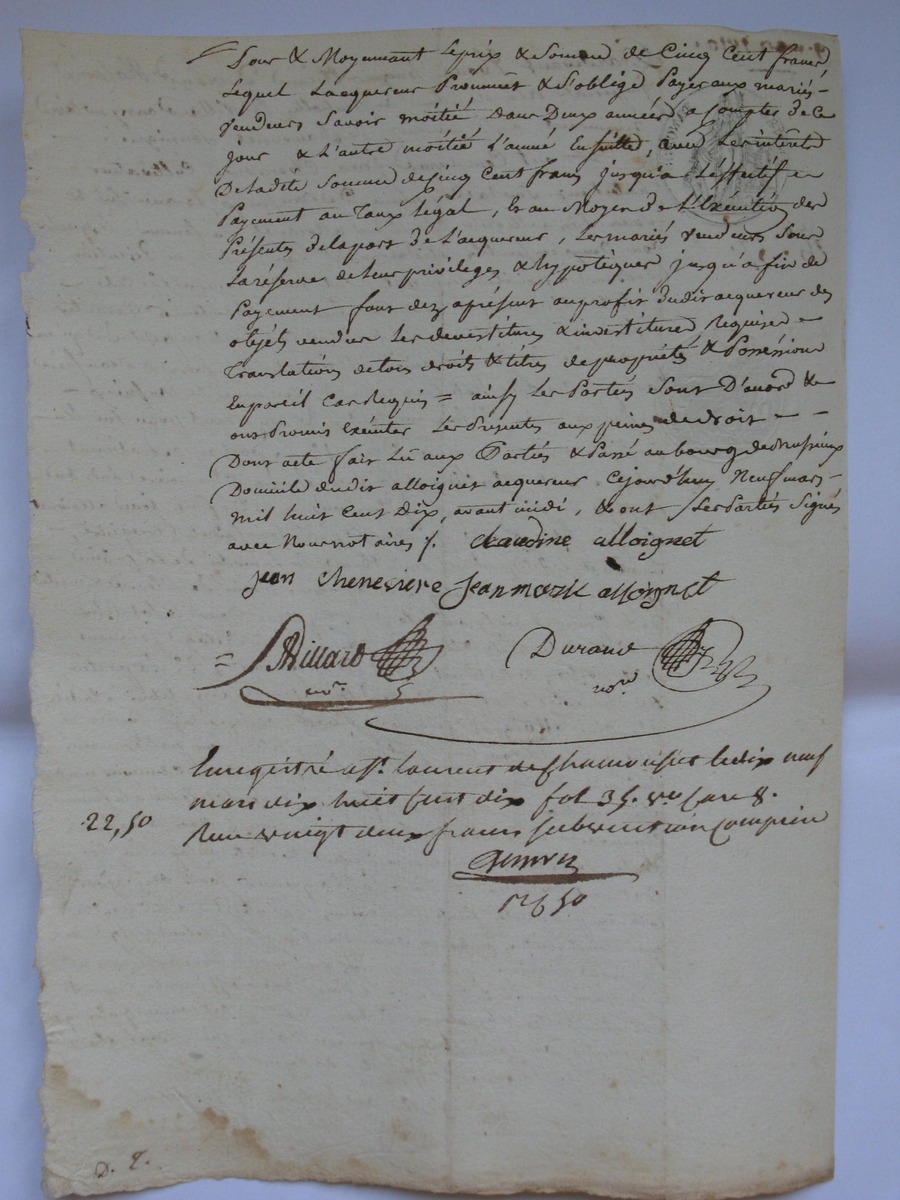 Pour & Moyennant le prix & Somme de Cinq Cent francs
Lequel Lacquereur Prommet & S'oblige Payer aux mariés
vendeurs Savoir moitié dans Deux années a Compter de Ce
jour & L'autre moitié L'année Ensuitte, avec Les interets
De ladite Somme de Cinq Cent francs jusqu'a L'effectif
Payement au Taux Légal, Et au Moyen de L'Exécution des
Présentes de la part de L'acquereur, Les mariés vendeurs Sous
La réserve de Leur privileges & hypotèques jusqu'a fin de
Payement font dez aprésent au profit dudit acquereur des
objets vendus Les devestitures & investitures Requises
Translations de tous droits & titres de propriétés & Possessions
En pareil Cas Requis = ainsy Les Parties Sont D'accord &
ont Promis Exécuter Les Présentes aux peines de droit
Dont acte fait Lu aux Parties & Passé au bourg de
Domicile dudit alloignet acquereur Cejourd'huy Neuf mars
mil huit Cent Dix, avant midi, & ont Les Parties Signés
avec Nous notaires /. claudine alloignet
jean cheneviere Jean marie alloignet
= Billard Durand
nre nre
Enregistré a St. Laurent de Chamousset le dix neuf
mars dix huit Cent dix fol 35. vo Case 8.
22,50
Reçu vingt deux francs subvention comprise
50
D. 2.